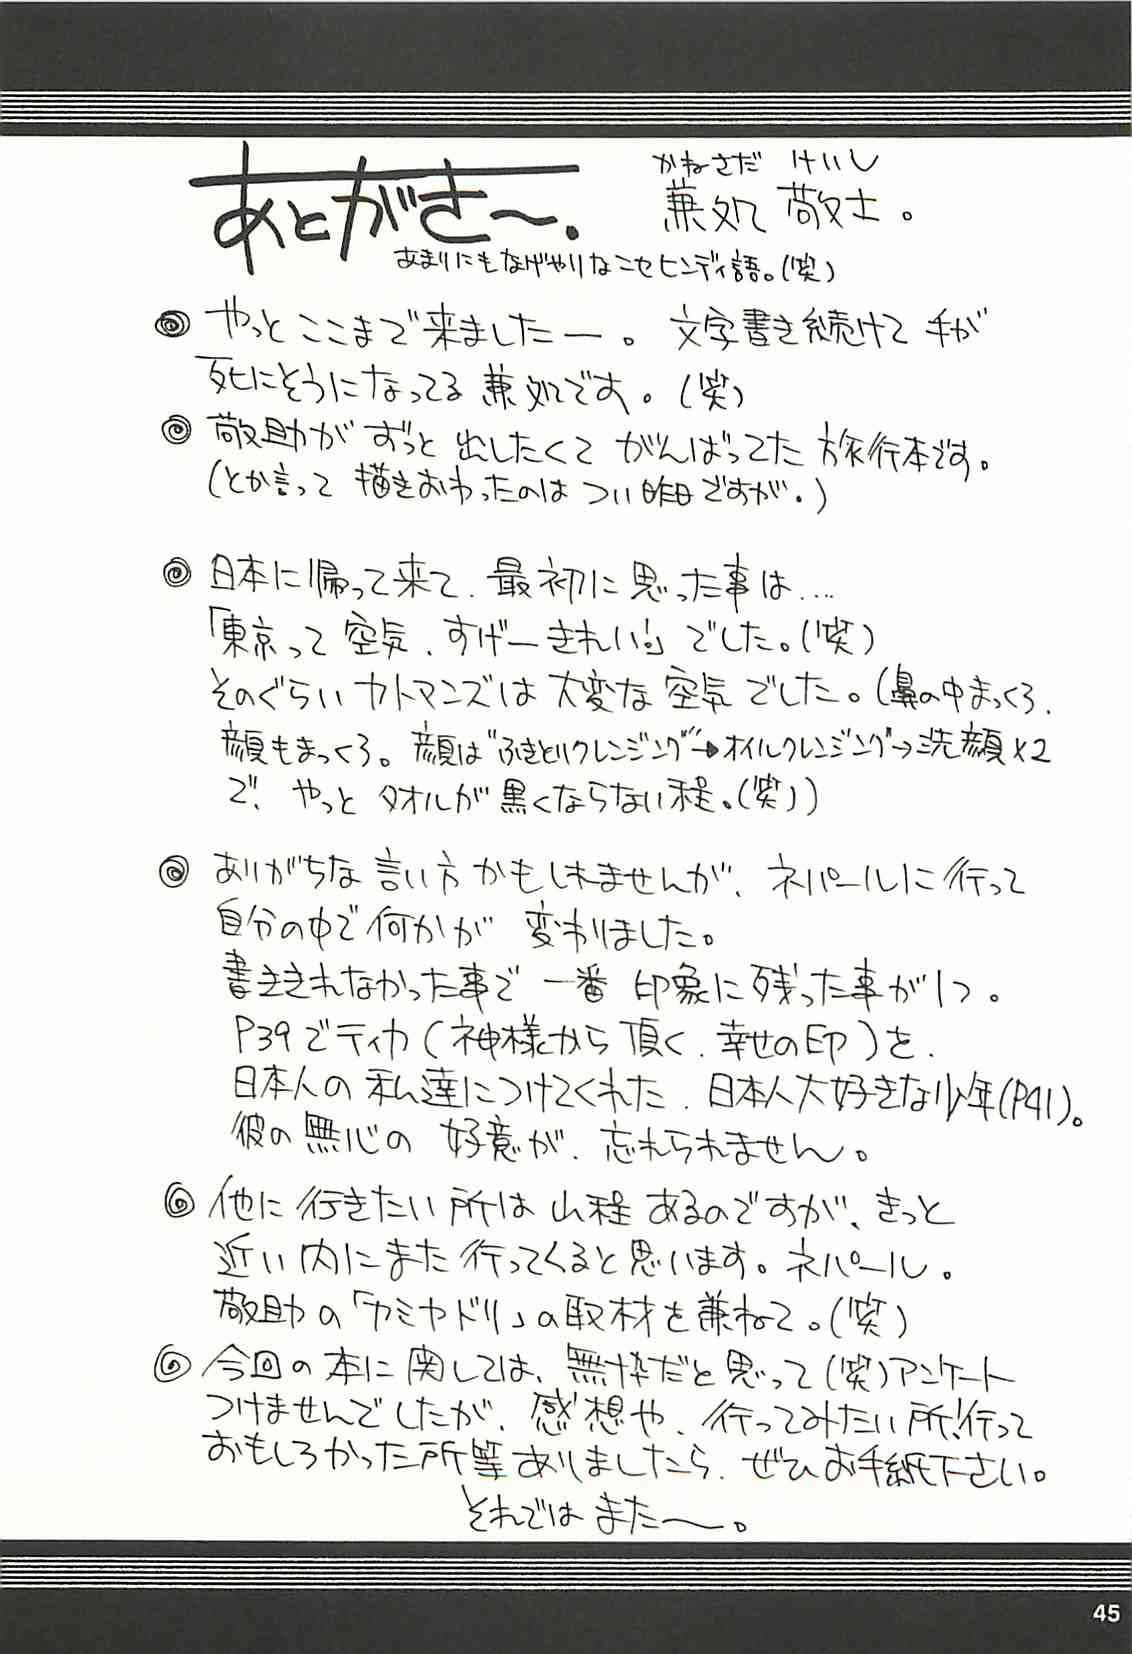 あとがき〜。
かねさだ けいし
兼処 敬士。
あまりにもなげやりなニセヒンディ語。(笑)
◎ やっとここまで来ましたー。 文字書き続けて 手が
死にそうになってる 兼処です。(笑)
◎ 敬助が ずっと 出したくて がんばってた 旅行本です。
(とか言って 描きおわったのは つい昨日ですが。)
◎ 日本に帰って来て、最初に思った事は....
「東京って 空気、すげーきれい!」でした。(笑)
そのぐらい カトマンズは 大変な 空気でした。(鼻の中まっくろ、
顔もまっくろ。顔は"ふきとりクレンジング"→オイルクレンジング→洗顔×2
で、やっと タオルが 黒くならない程。(笑))
◎ ありがちな 言い方かもしれませんが、ネパールに行って
自分の中で何かが 変わりました。
書ききれなかった事で 一番 印象に残った事が1つ。
P39でティカ(神様から 頂く、幸せの印)を、
日本人の 私達につけてくれた、日本人大好きな少年(P41)。
彼の無心の 好意が、忘れられません。
◎ 他に 行きたい 所は 山程 あるのですが、きっと
近い内にまた 行ってくると思います。ネパール。
敬助の「カミヤドリ」の取材を兼ねて。(笑)
◎ 今回の本に関しては、無粋だと思って(笑)アンケート
つけませんでしたが、感想や、行ってみたい所、行って
おもしろかった所等 ありましたら、ぜひお手紙下さい。
それでは また〜。
45